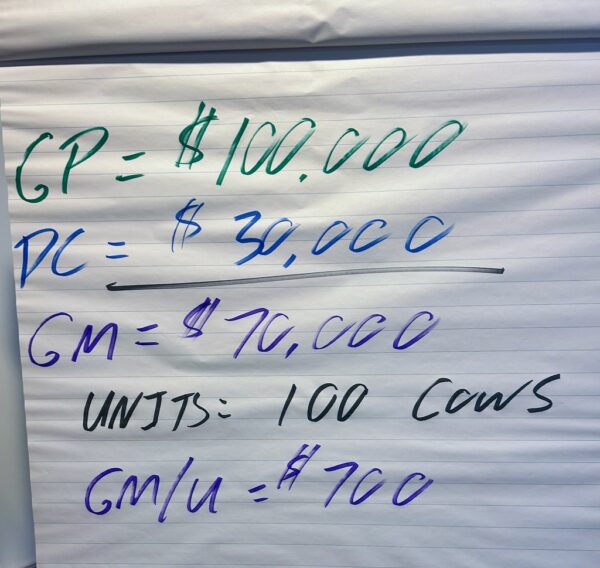 GP = $100,000
DC = $30,000
GM = $70,000
UNITS: 100 COWS
GM/U = $700